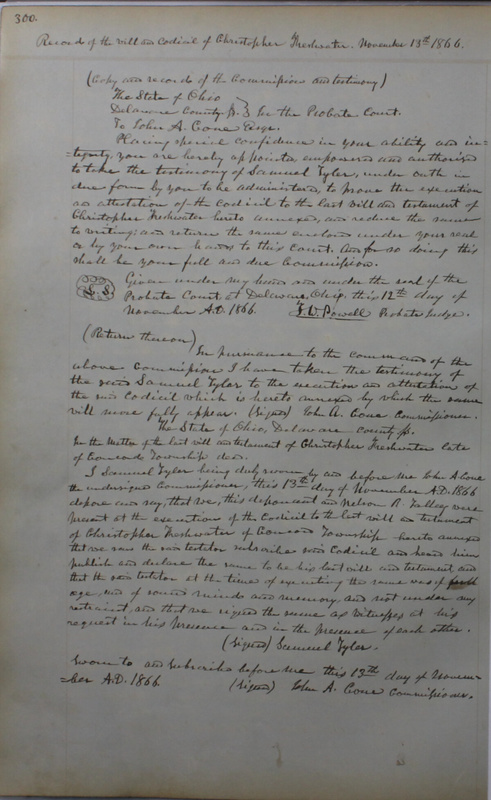 300.
Record of the will and Codicil of Christopher Freshwater. November 13th 1866.
(Copy and record of the Commission and testimony)
The State of Ohio
Delaware County ss. } In the Probate Court.
To John A. Cone Esqr.
Placing special confidence in your ability and in-
=tegrity, you are hereby appointed, empowered and authorized
to take the testimony of Samuel Tyler, under oath in
due form by you to be administered, to prove the execution
and attestation of the codicil to the last will and testament of
Christopher Freshwater hereto annexed, and reduce the same
to writing; and return the same enclosed under your seal
or by your own hands to this Court. And for so doing this
shall be your full and due Commission.
L. S. Given under my hand and under the seal of the
Probate Court at Delaware, Ohio, this 12th day of
November A.D. 1866. Probate Judge.
(Return thereon)
In pursuance to the command of the
above Commission I have taken the testimony of
the said Samuel Tyler to the execution and attestation of
the said Codicil which is hereto annexed by which the same
will more fully appear. (Signed) John A. Cone Commissioner.
The State of Ohio, Delaware County ss.
In the Matter of the last will and testament of Christopher Freshwater late
of Concord Township decd.
I Samuel Tyler being duly sworn by and before me John A Cone
the undersigned Commissioner, this 13th day of November A.D. 1866
depose and say, that we, this deponent and Nelson R. were
present at the execution of the Codicil to the last will and testament
of Christopher Freshwater of Concord Township hereto annexed
that we saw the said testator subscribe said Codicil and heard him
publish and declare the same to be his last will and testament, and
that the said testator at the time of executing the same was of
age, and of sound mind and memory, and not under any
restraint, and that we signed the same as witnesses at his
request in his presence and in the presence of each other.
(Signed) Samuel Tyler.
Sworn to and subscribed before me this 13th day of Novem-
=ber A.D. 1866 (Signed) John A. Cone Commissioner.